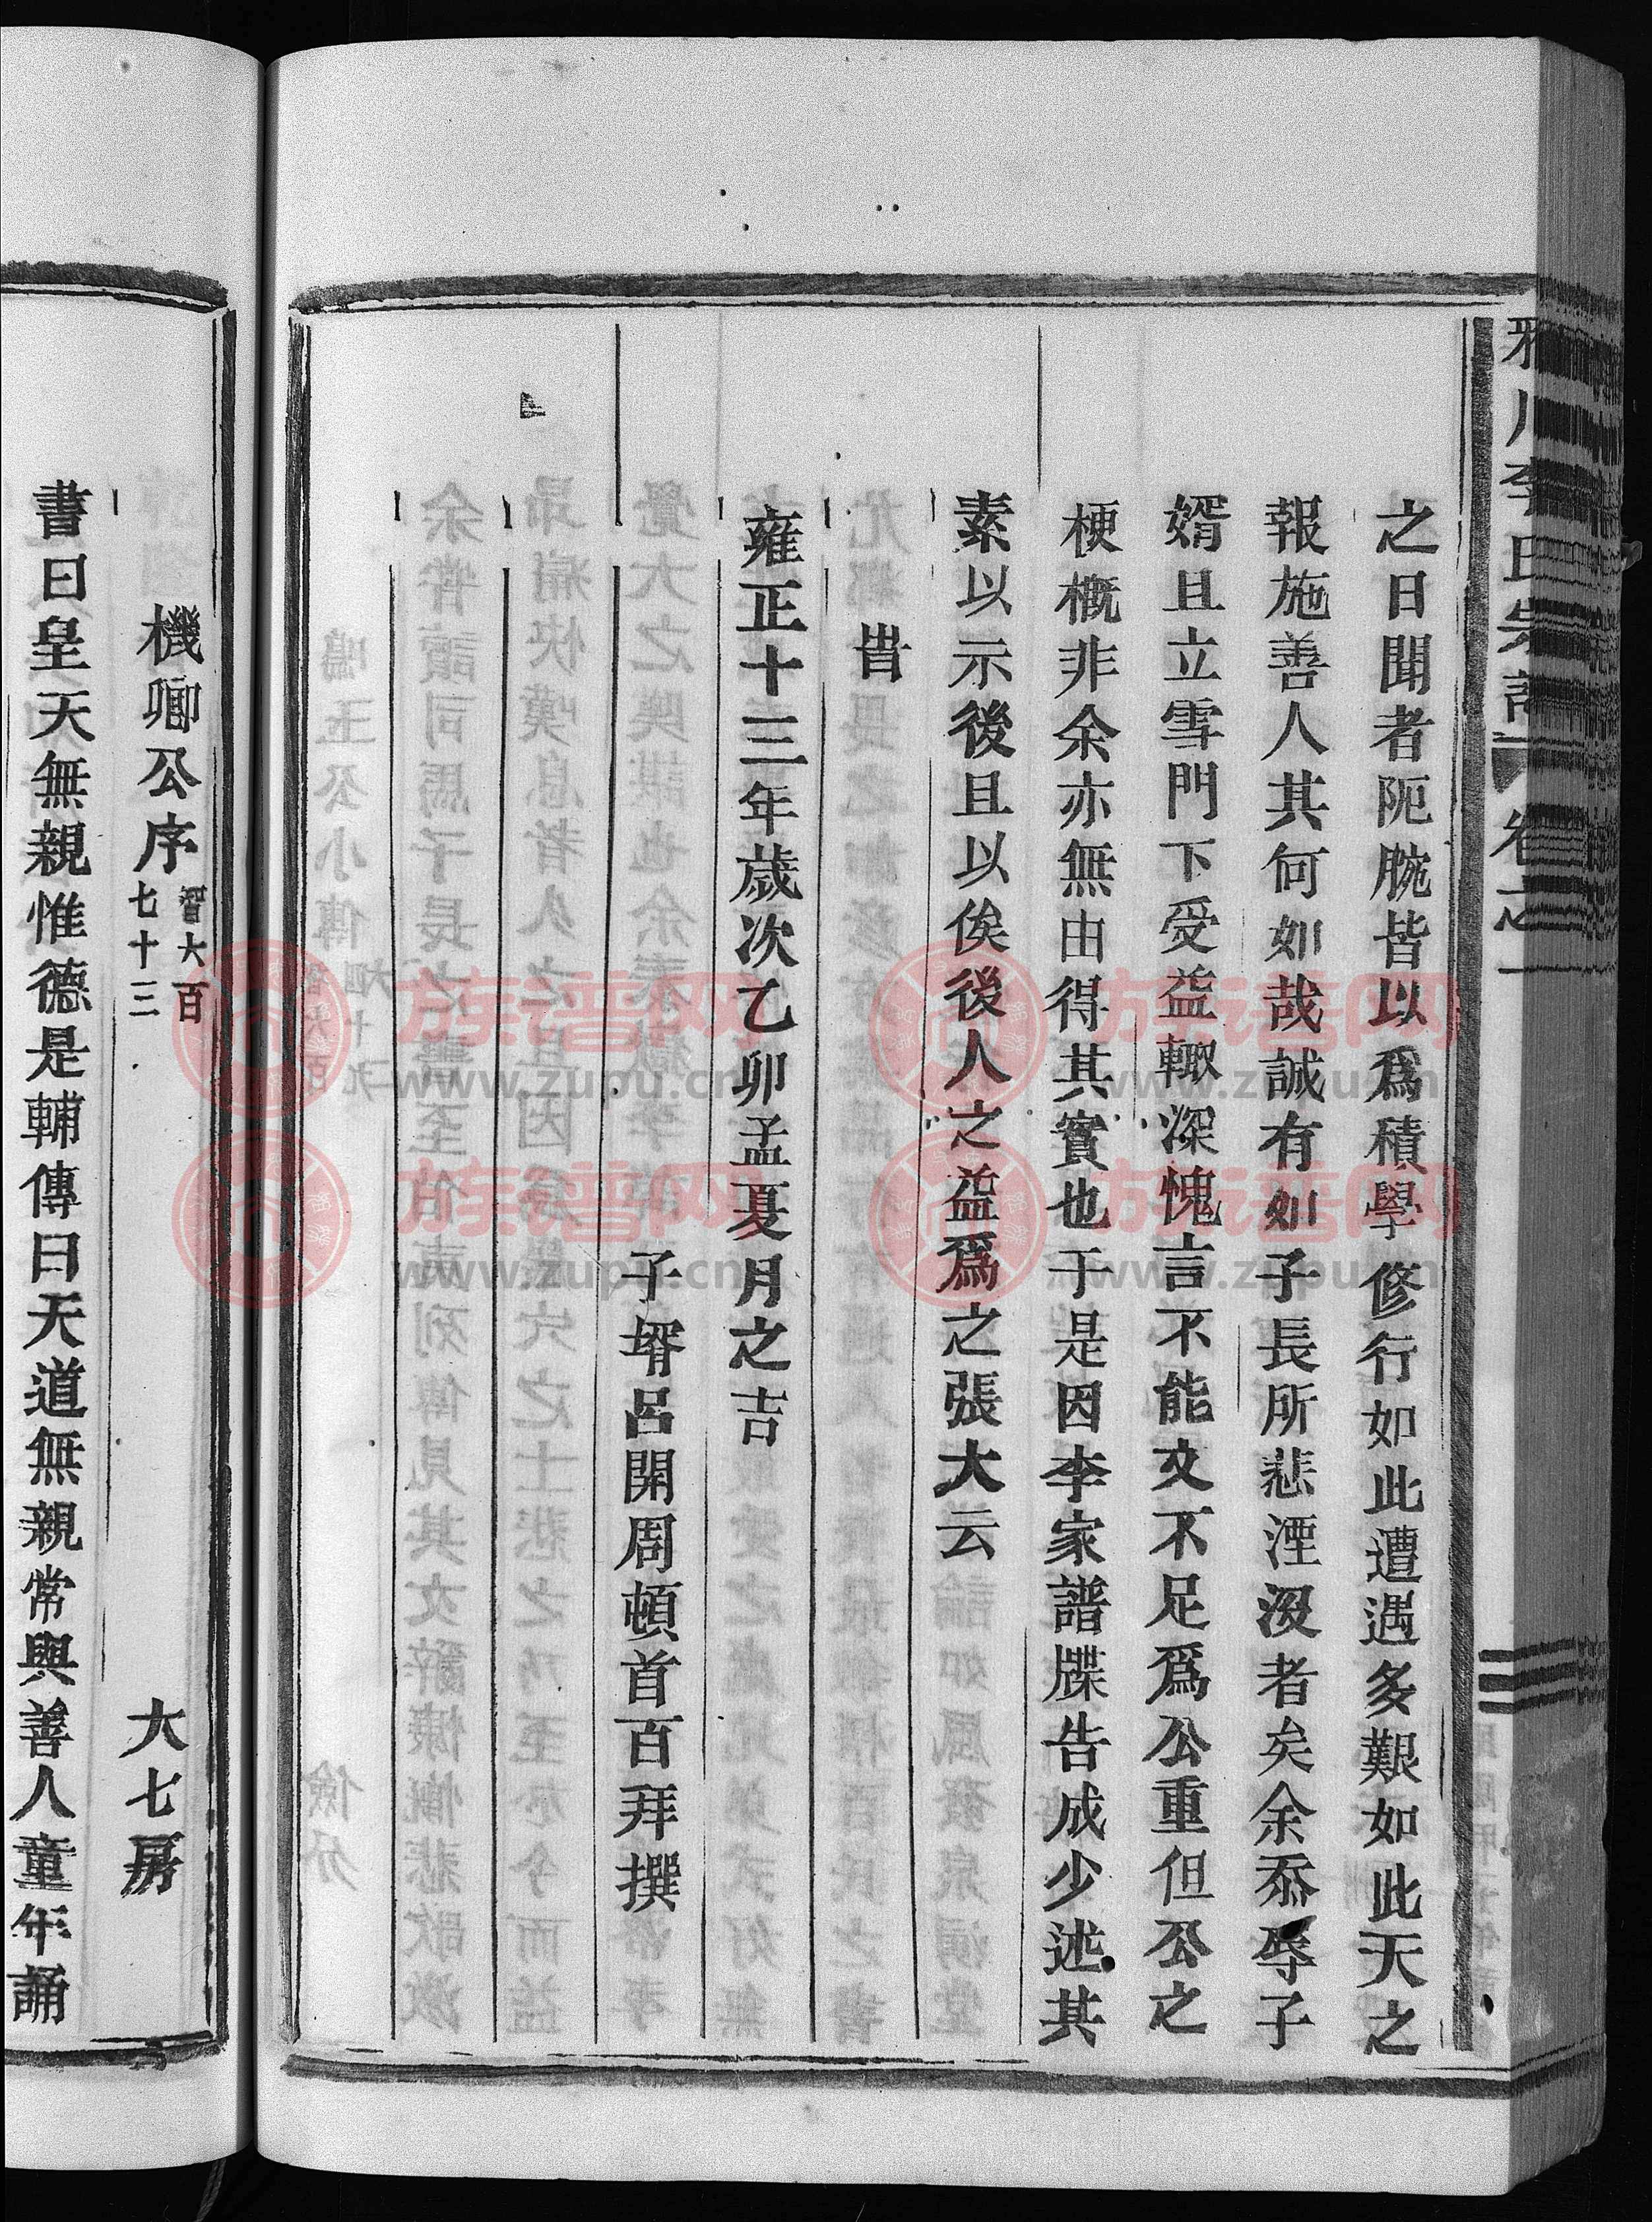 之日聞者阨腕皆以爲積學修行如此遭遇多艱如此天之
報施善人其何如哉誠有如子長所悲湮沒者矣余忝辱子
婿且立雪門下受益輙深愧言不能文不足爲公重但公之
梗概非余亦無由得其實也于是因李家譜牒告成少述其
素以示後且以俟後人之益爲之張大云
旹
雍正十三年歲次乙卯孟夏月之吉
子壻呂開周頓首百拜撰
機卿公序 智大百七十三 大七房
書曰皇天無親惟德是輔傳曰天道無親常與善人童年誦
李氏宗譜 卷之一
族谱网
www.zupu.cn
族谱网
www.zupu.cn
族谱网
www.zupu.cn
族谱网
www.zupu.cn